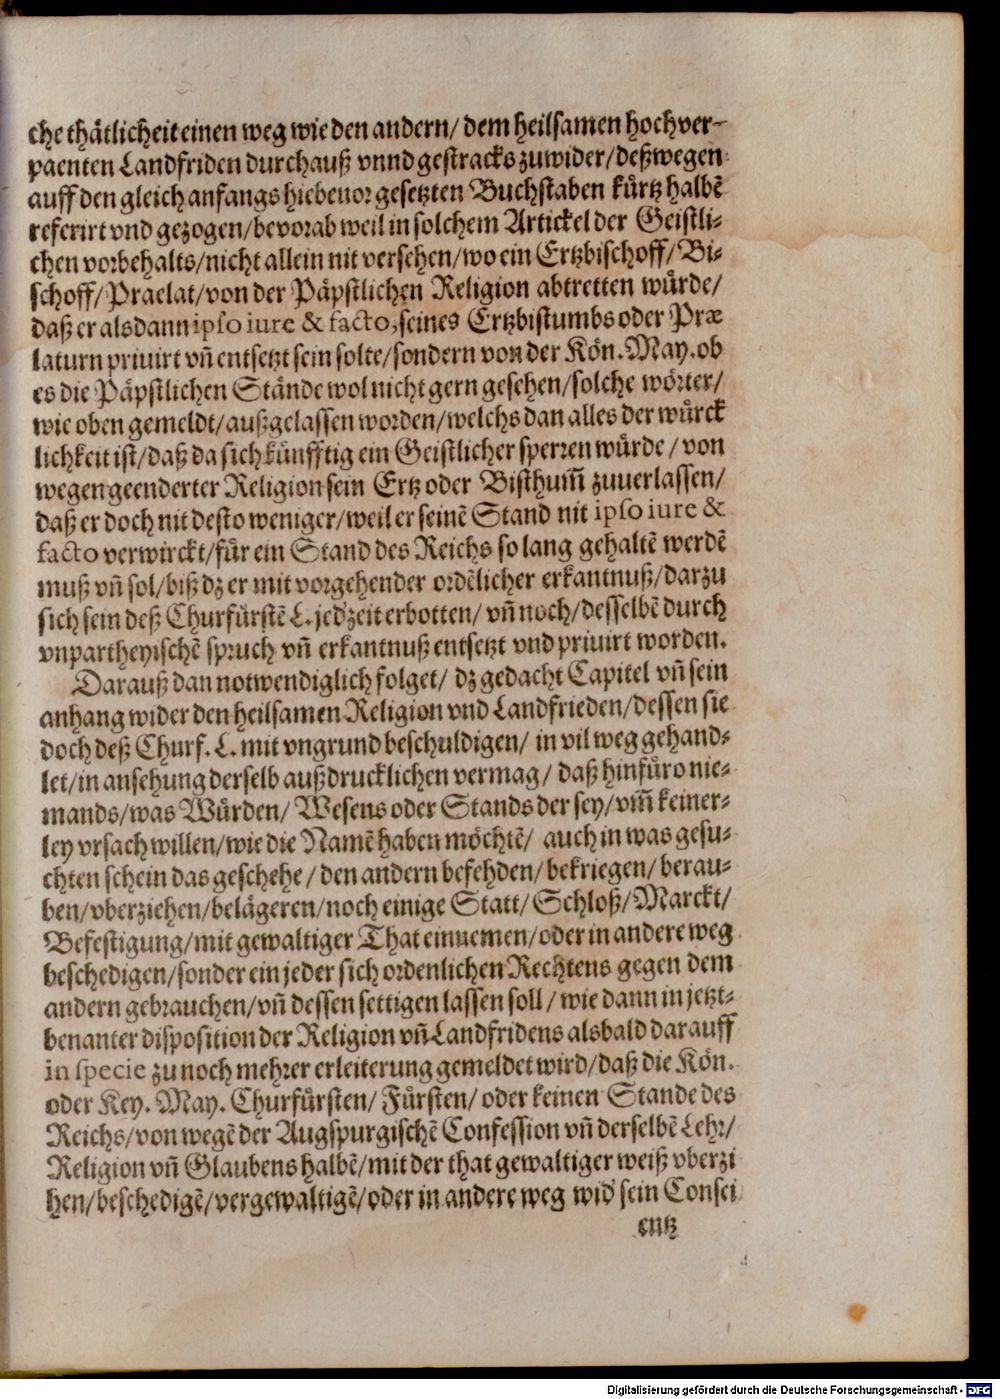 che thätlicheit einen weg wie den andern/ dem heilsamen hochver-
paenten Landfriden durchauß vnnd gestracks zuwider/ deßwegen
auff den gleich anfangs hiebeuor gesetzten Buchstaben kürtz halbẽ
referirt vnd gezogen/ bevorab weil in solchem Artickel der Geistli-
chen vorbehalts/ nicht allein nit versehen/ wo ein Ertzbischoff/ Bi-
schoff/ Praelat/ von der Päpstlichen Religion abtretten würde/
daß er alsdann ipso iure & facto, seines Ertzbistumbs oder Præ
laturn priuirt vñ entsetzt sein solte/ sondern von der Kön. May. ob
es die Päpstlichen Stände wol nicht gern gesehen/ solche wörter/
wie oben gemeldt/ außgelassen worden/ welchs dan alles der würck
lichkeit ist/ daß da sich künfftig ein Geistlicher sperren würde/ von
wegen geenderter Religion sein Ertz oder Bisthum̃ zuuerlassen/
daß er doch nit desto weniger/ weil er seinẽ Stand nit ipso iure &
facto verwirckt/ für ein Stand des Reichs so lang gehaltẽ werdẽ
muß vñ sol/ biß dz er mit vorgehender ordẽlicher erkantnuß/ darzu
sich sein deß Churfürstẽ L. jed'zeit erbotten/ vñ noch/ desselbẽ durch
vnpartheyischẽ spruch vñ erkantnuß entsetzt vnd priuirt worden.
Darauß dan notwendiglich folget/ dz gedacht Capitel vñ sein
anhang wider den heilsamen Religion vnd Landfrieden/ dessen sie
doch deß Churf. L. mit vngrund beschuldigen/ in vil weg gehand-
let/ in ansehung derselb außdrucklichen vermag/ daß hinfüro nie-
mands/ was Würden/ Wesens oder Stands der sey/ vm̃ keiner-
ley vrsach willen/ wie die Namẽ haben möchtẽ/ auch in was gesu-
chten schein das geschehe/ den andern befehden/ bekriegen/ berau-
ben/ vberziehen/ belägeren/ noch einige Statt/ Schloß/ Marckt/
Befestigung/ mit gewaltiger That einnemen/ oder in andere weg
beschedigen/ sonder ein jeder sich ordenlichen Rechtens gegen dem
andern gebrauchen/ vñ dessen settigen lassen soll/ wie dann in jetzt-
benanter disposition der Religion vñ Landfridens alsbald darauff
in specie zu noch mehrer erleiterung gemeldet wird/ daß die Kön.
oder Key. May. Churfürsten/ Fürsten/ oder keinen Stande des
Reichs/ von wegẽ der Augspurgischẽ Confession vñ derselbẽ Lehr/
Religion vñ Glaubens halbẽ/ mit der that gewaltiger weiß vberzi
hen/ beschedigẽ/ vergewaltigẽ/ oder in andere weg wid' sein Consci
entz
Digitalisierung gefördert durch die Deutsche Forschungsgemeinschaft - DFG